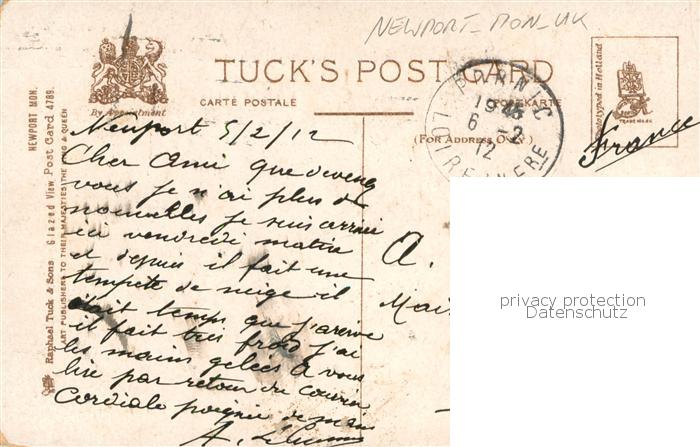 NEWPORT_MON_UK
TUCK'S POST CARD
By Appointment
CARTE POSTALE
POSTKARTE
(FOR ADDRESS ONLY.)
PORNIC
1945
6 -2
12
LOIRE INFERE
Phototyped in Holland
TRADE MARK
France
NEWPORT MON.
Raphael Tuck & Sons Glazed View Post Card 4789.
ART PUBLISHERS TO THEIR MAJESTIES THE KING & QUEEN
Newport 5/2/12
Cher Ami que devenez
vous je n'ai plus de
nouvelles je suis arrivé
ici vendredi matin
et depuis il fait une
tempete de neige il
était temps que j'arrive
il fait très froid j'ai
les mains gelées a vous
lire par retour du courrier
Cordiale poignée de main
A.
A.
Mai
privacy protection
Datenschutz